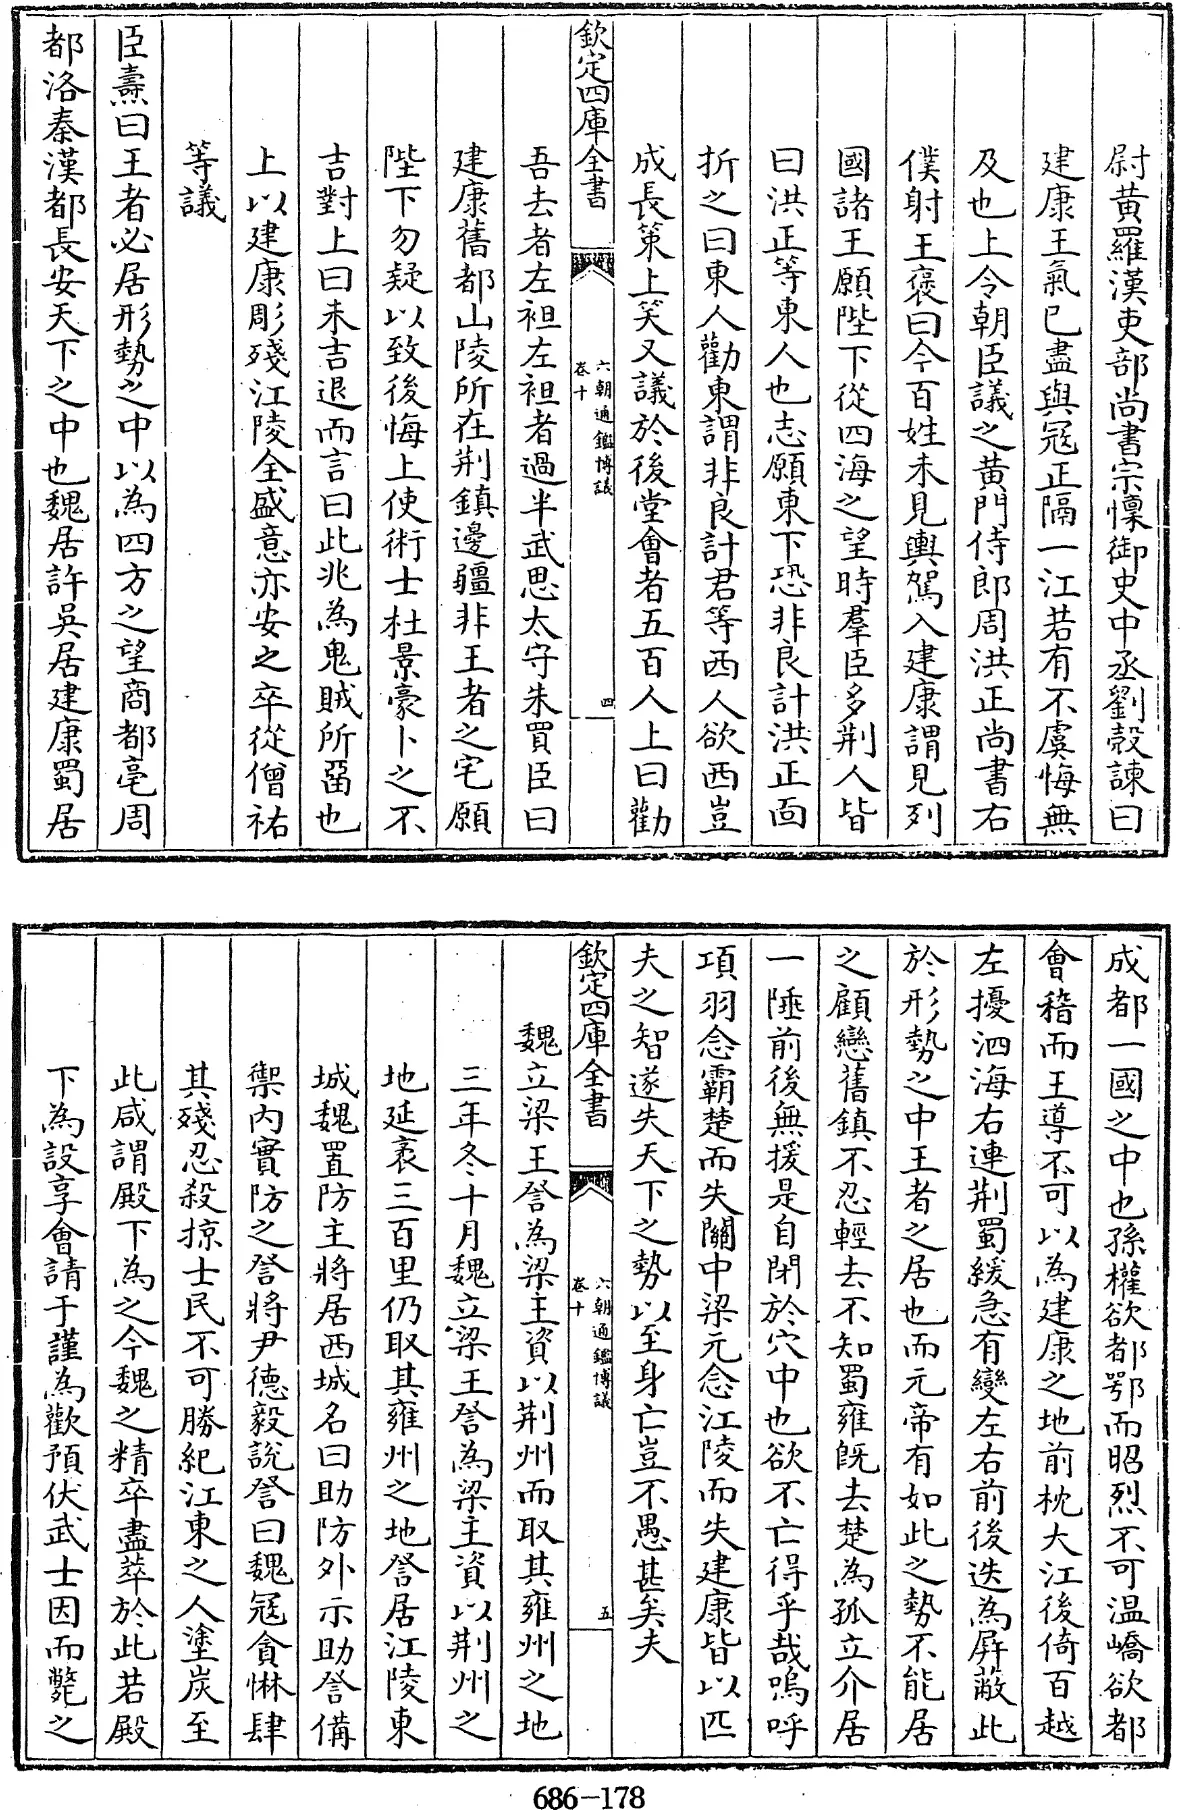 尉黄羅漢吏部尚書宗懍御史中丞劉㲄諫曰
建康王氣已盡與冦正隔一江若有不虞悔無
及也上令朝臣議之黄門侍郎周洪正尚書右
僕射王褒曰今百姓未見輿駕入建康謂見列
國諸王願陛下從四海之望時羣臣多荆人皆
曰洪正等東人也志願東下恐非良計洪正面
折之曰東人勸東謂非良計君等西人欲西豈
成長策上笑又議於後堂會者五百人上曰勸
欽定四庫全書
六朝通鑑博議
卷十
四
吾去者左袒左袒者過半武思太守朱買臣曰
建康舊都山陵所在荆鎮邊疆非王者之宅願
陛下勿疑以致後悔上使術士杜景豪卜之不
吉對上曰未吉退而言曰此兆為鬼賊所㽞也
上以建康彫殘江陵全盛意亦安之卒從僧祐
等議
臣燾曰王者必居形勢之中以為四方之望商都亳周
都洛秦漢都長安天下之中也魏居許吳居建康蜀居
成都一國之中也孫權欲都鄂而昭烈不可温嶠欲都
會稽而王導不可以為建康之地前枕大江後倚百越
左擾泗海右連荆蜀緩急有變左右前後迭為屛蔽此
於形勢之中王者之居也而元帝有如此之勢不能居
之顧戀舊鎮不忍輕去不知蜀雍旣去楚為孤立介居
一陲前後無援是自閉於穴中也欲不亡得乎哉嗚呼
項羽念霸楚而失關中梁元念江陵而失建康皆以匹
夫之智遂失天下之勢以至身亡豈不愚甚矣夫
欽定四庫全書
六朝通鑑博議
卷十
五
魏立梁王詧為梁主資以荆州而取其雍州之地
三年冬十月魏立梁王詧為梁主資以荆州之
地延袤三百里仍取其雍州之地詧居江陵東
城魏置防主將居西城名曰助防外示助詧備
禦内實防之詧將尹德毅説詧曰魏冦貪惏肆
其殘忍殺掠士民不可勝紀江東之人塗炭至
此咸謂殿下為之今魏之精卒盡萃於此若殿
下為設享會請于謹為歡預伏武士因而斃之
686-178